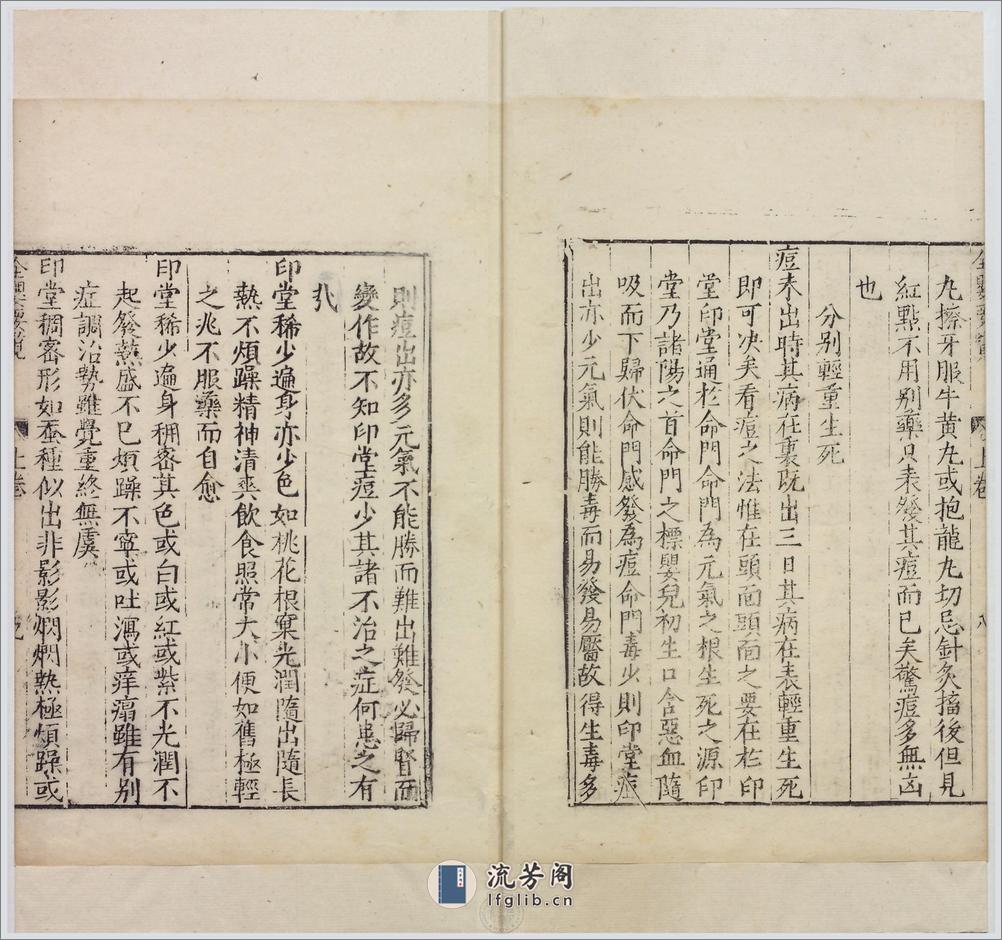 丸擦牙服牛黄丸或抱龍丸切忌針灸搐後但見
紅點不用别藥只表發其痘而已矣驚痘多無凶
也
分别輕重生死
痘未出時其病在裏既出三日其病在表輕重生死
即可决矣看痘之法惟在頭面頭面之要在於印
堂印堂通於命門命門為元氣之根生死之源印
堂乃諸陽之首命門之標嬰兒初生口含惡血隨
吸而下歸伏命門感發為痘命門毒少則印堂痘
出亦少元氣則能勝毒而易發易靨故得生毒多
上卷
八
則痘出亦多元氣不能勝而難出難發必歸腎而
變作故不知印堂痘少其諸不治之症何患之有
印堂稀少遍身亦少色如桃花根窠光潤隨出隨長
熱不煩躁精神清爽飲食照常大小便如舊極輕
之兆不服藥而自愈
印堂稀少遍身稠密其色或白或紅或紫不光潤不
起發熱盛不已煩躁不寧或吐瀉或痒瘤雖有别
症調治勢雖覺重終無虞
印堂稠密形如蚕種似出非影影悶悶熱極煩躁或
上卷
流芳阁
lfglib.cn